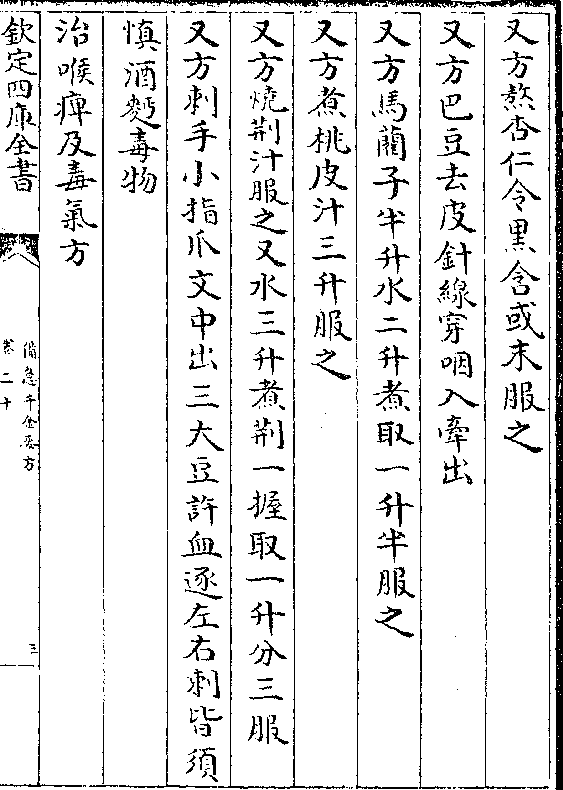 又方熬杏仁令黒含或末服之
又方巴豆去皮針線穿咽入牽出
又方馬蘭子半升水二升煮取一升半服之
又方煮桃皮汁三升服之
又方燒荆汁服之又水三升煮荆一握取一升分三服
又方刺手小指爪文中出三大豆許血逐左右刺皆須
慎酒麫毒物
治喉痺及毒氣方
欽定四庫全書
備急千金要方
卷二十
三